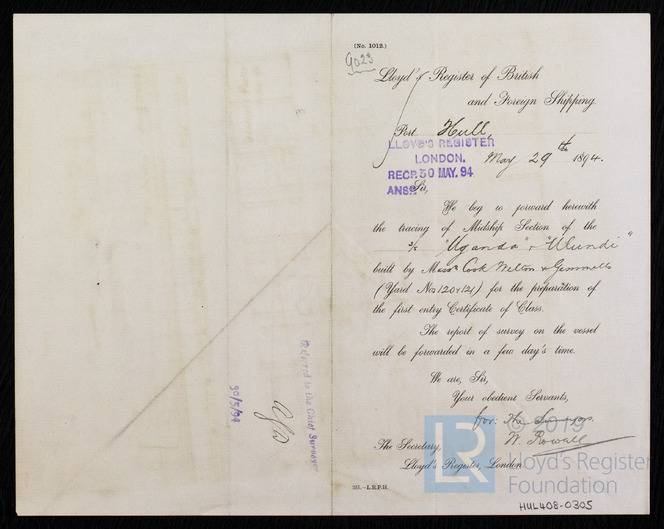 (No. 1012.)
9023
Lloyd's Register of British
and Foreign Shipping.
Port Hull,
LLOYD'S REGISTER
LONDON.
May 29th 1894.
RECD. 30 MAY. 94
ANSD.
Sir,
We beg to forward herewith
the tracing of Midship Section of the
s/s "Uganda" & "Wundi"
built by Messrs Cook Welton & Gemmell
(Yard Nos 120 & 121) for the preparation of
the first entry Certificate of Class.
The report of survey on the vessel
will be forwarded in a few day's time.
We are, Sir,
Your obedient Servants,
for: The Surveyors.
W. Rowall
The Secretary,
Lloyd's Register, London
© 2019
LR
Lloyd's Register
Foundation
HUL408-0305
Referred to the Chief Surveyor
30/5/94